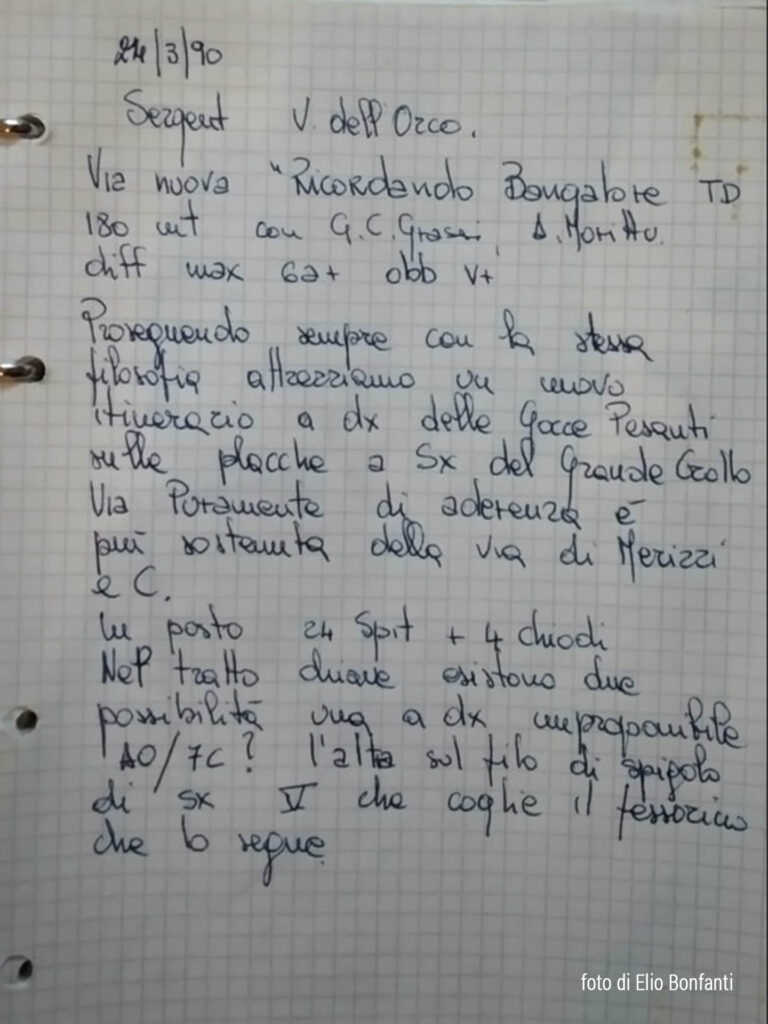 24/3/90
Sergent V. dell'Orco.
Via nuova "Ricordando Bangalore TD
180 mt con G.C. Grassi, A. Morittu.
diff max 6a+ obb V+
Proseguendo sempre con la stessa
filosofia attrezziamo un nuovo
itinerario a dx delle Gocce Pesanti
sulle placche a Sx del Grande Crollo
Via Puramente di aderenza è
più sostenuta della via di Merizzi
e C.
In posto 24 Spit + 4 chiodi
Nel tratto chiave esistono due
possibilità una a dx improponibile
A0/7c? l'altra sul filo di spigolo
di sx V che coglie il fessurino
che lo segue
foto di Elio Bonfanti